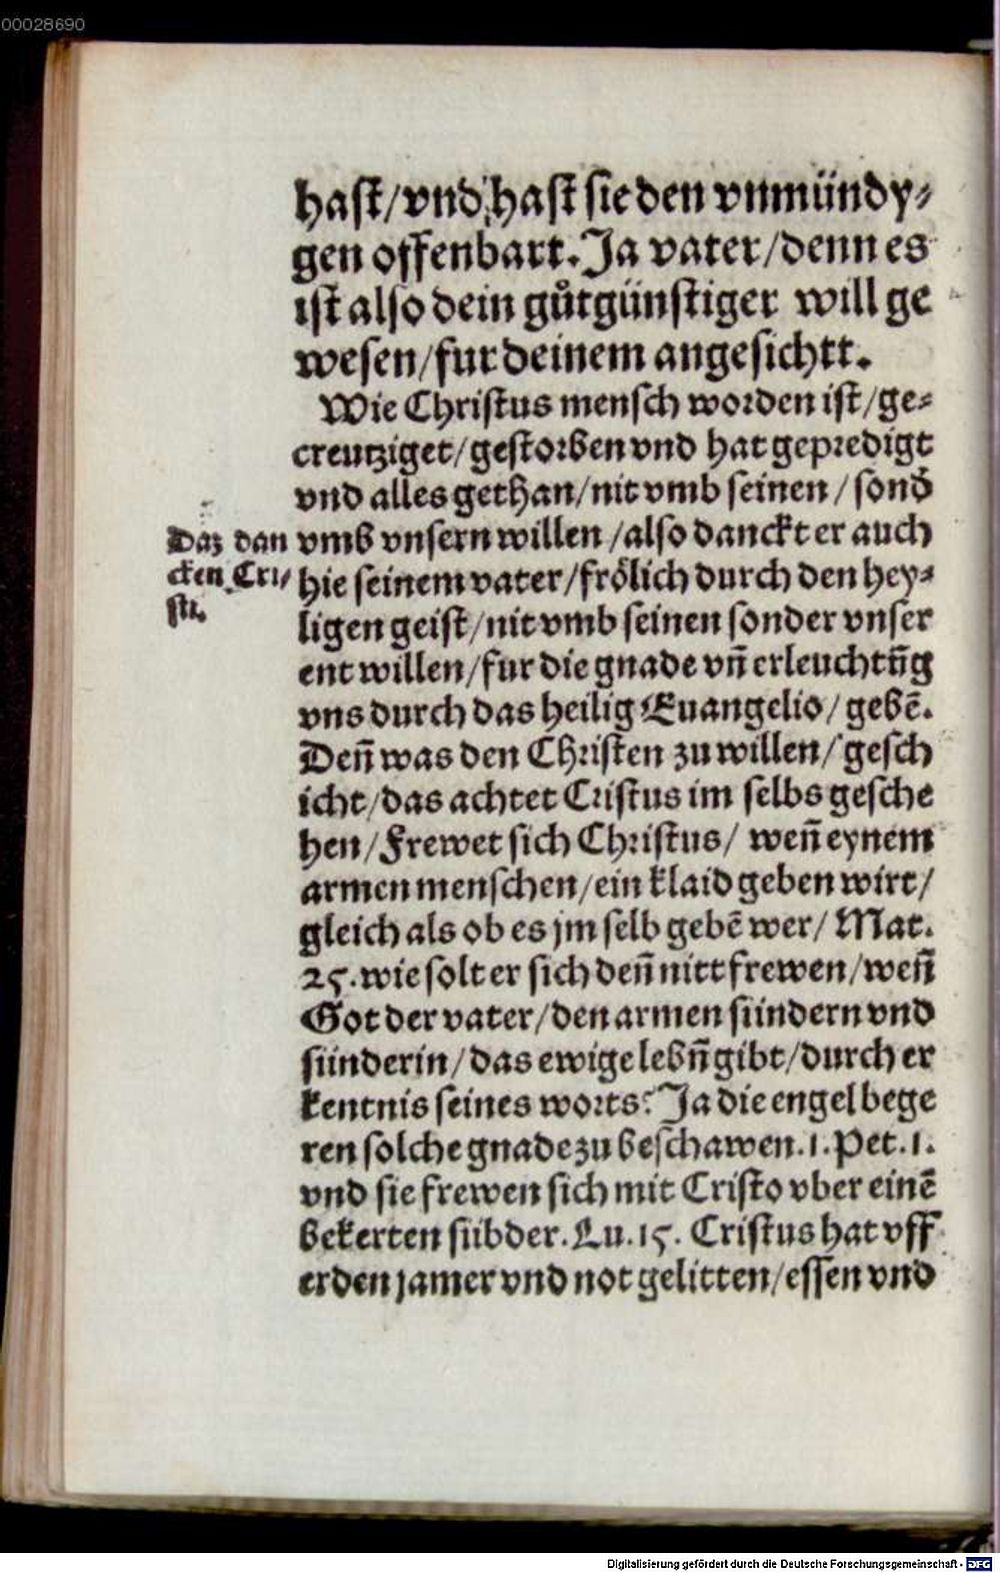 00028690
hast/vnd hast sie den vnmündy⸗
gen offenbart. Ja vater/denn es
ist also dein gůtgünstiger will ge
wesen/fur deinem angesichtt.
Wie Christus mensch worden ist/ge⸗
creutziget/gestorben vnd hat gepredigt
vnd alles gethan/nit vmb seinen/sond̾
vmb vnsern willen/also danckt er auch
Daz dan
cken Cri⸗
sti.
hie seinem vater/frölich durch den hey⸗
ligen geist/nit vmb seinen sonder vnser
ent willen/fur die gnade vñ erleuchtũg
vns durch das heilig Euangelio/gebẽ.
Deñ was den Christen zu willen/gesch
icht/das achtet Cristus im selbs gesche
hen/Frewet sich Christus/ weñ eynem
armen menschen/ein klaid geben wirt/
gleich als ob es jm selb gebẽ wer/Mat.
25. wie solt er sich deñ nitt frewen/weñ
Got der vater/den armen sündern vnd
sünderin/das ewige lebñ gibt/durch er
kentnis seines worts? Ja die engel bege
ren solche gnade zu beschawen. 1. Pet. 1.
vnd sie frewen sich mit Cristo vber einẽ
bekerten sübder. Lu. 15. Cristus hat vff
erden jamer vnd not gelitten/essen vnd
Digitalisierung gefördert durch die Deutsche Forschungsgemeinschaft - DFG